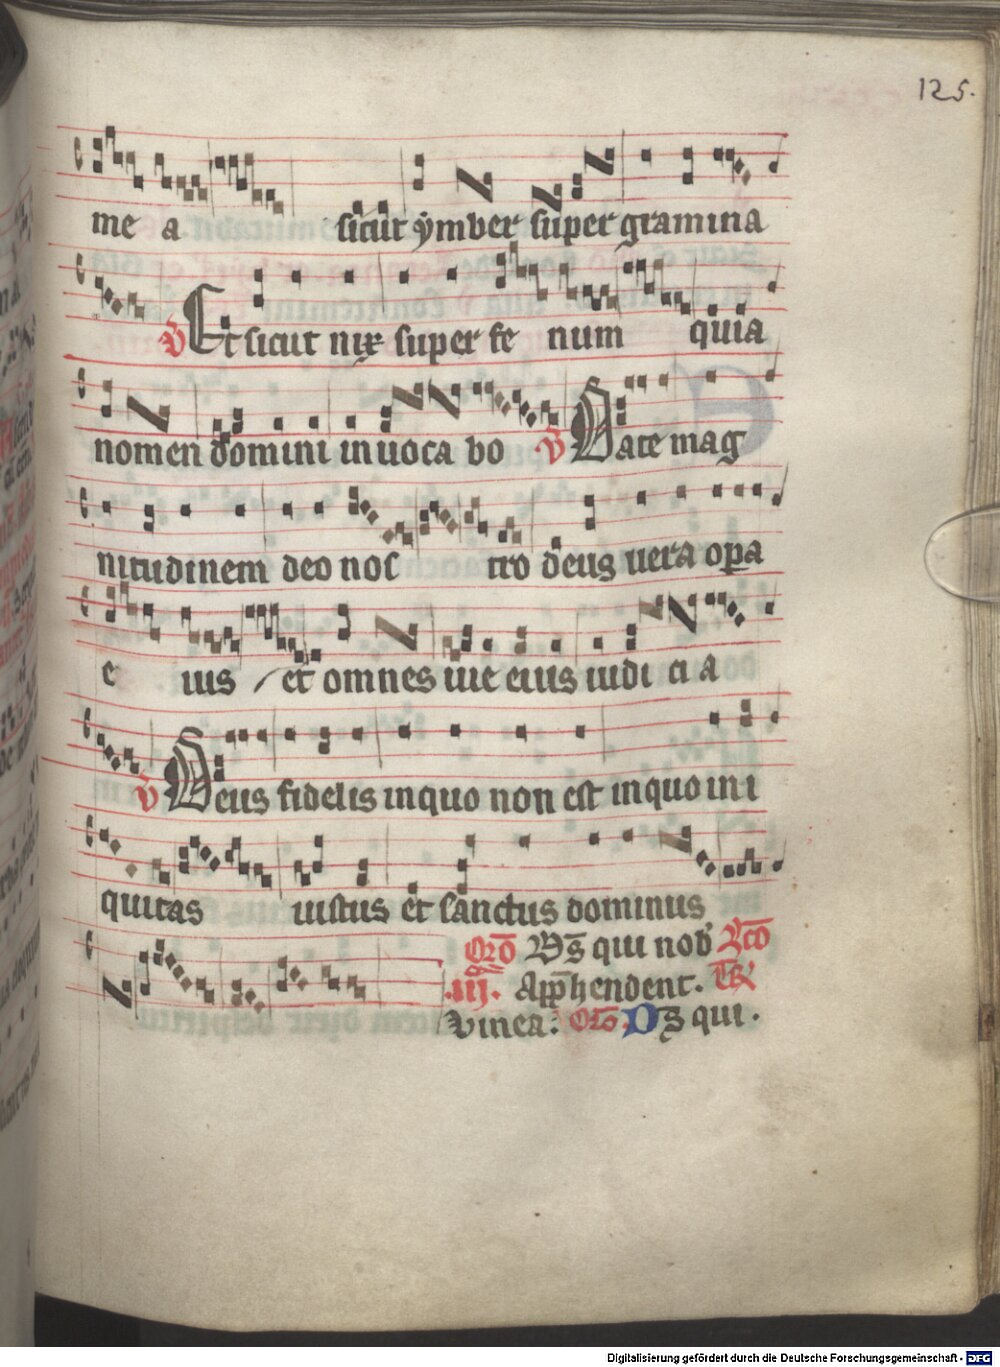 125.
me a sicut ymber super gramina
V Et sicut nix super fe num quia
nomen domini inuoca bo V Date mag
nitudinem deo nos tro deus uera opa
e ius et omnes uie eius iudi ci a
V Deus fidelis in quo non est in quo ini
quitas iustus et sanctus dominus
Oro Ds qui nob
.III. Apphendent.
Vinea: Oro. Ds qui.
Digitalisierung gefördert durch die Deutsche Forschungsgemeinschaft - DFG